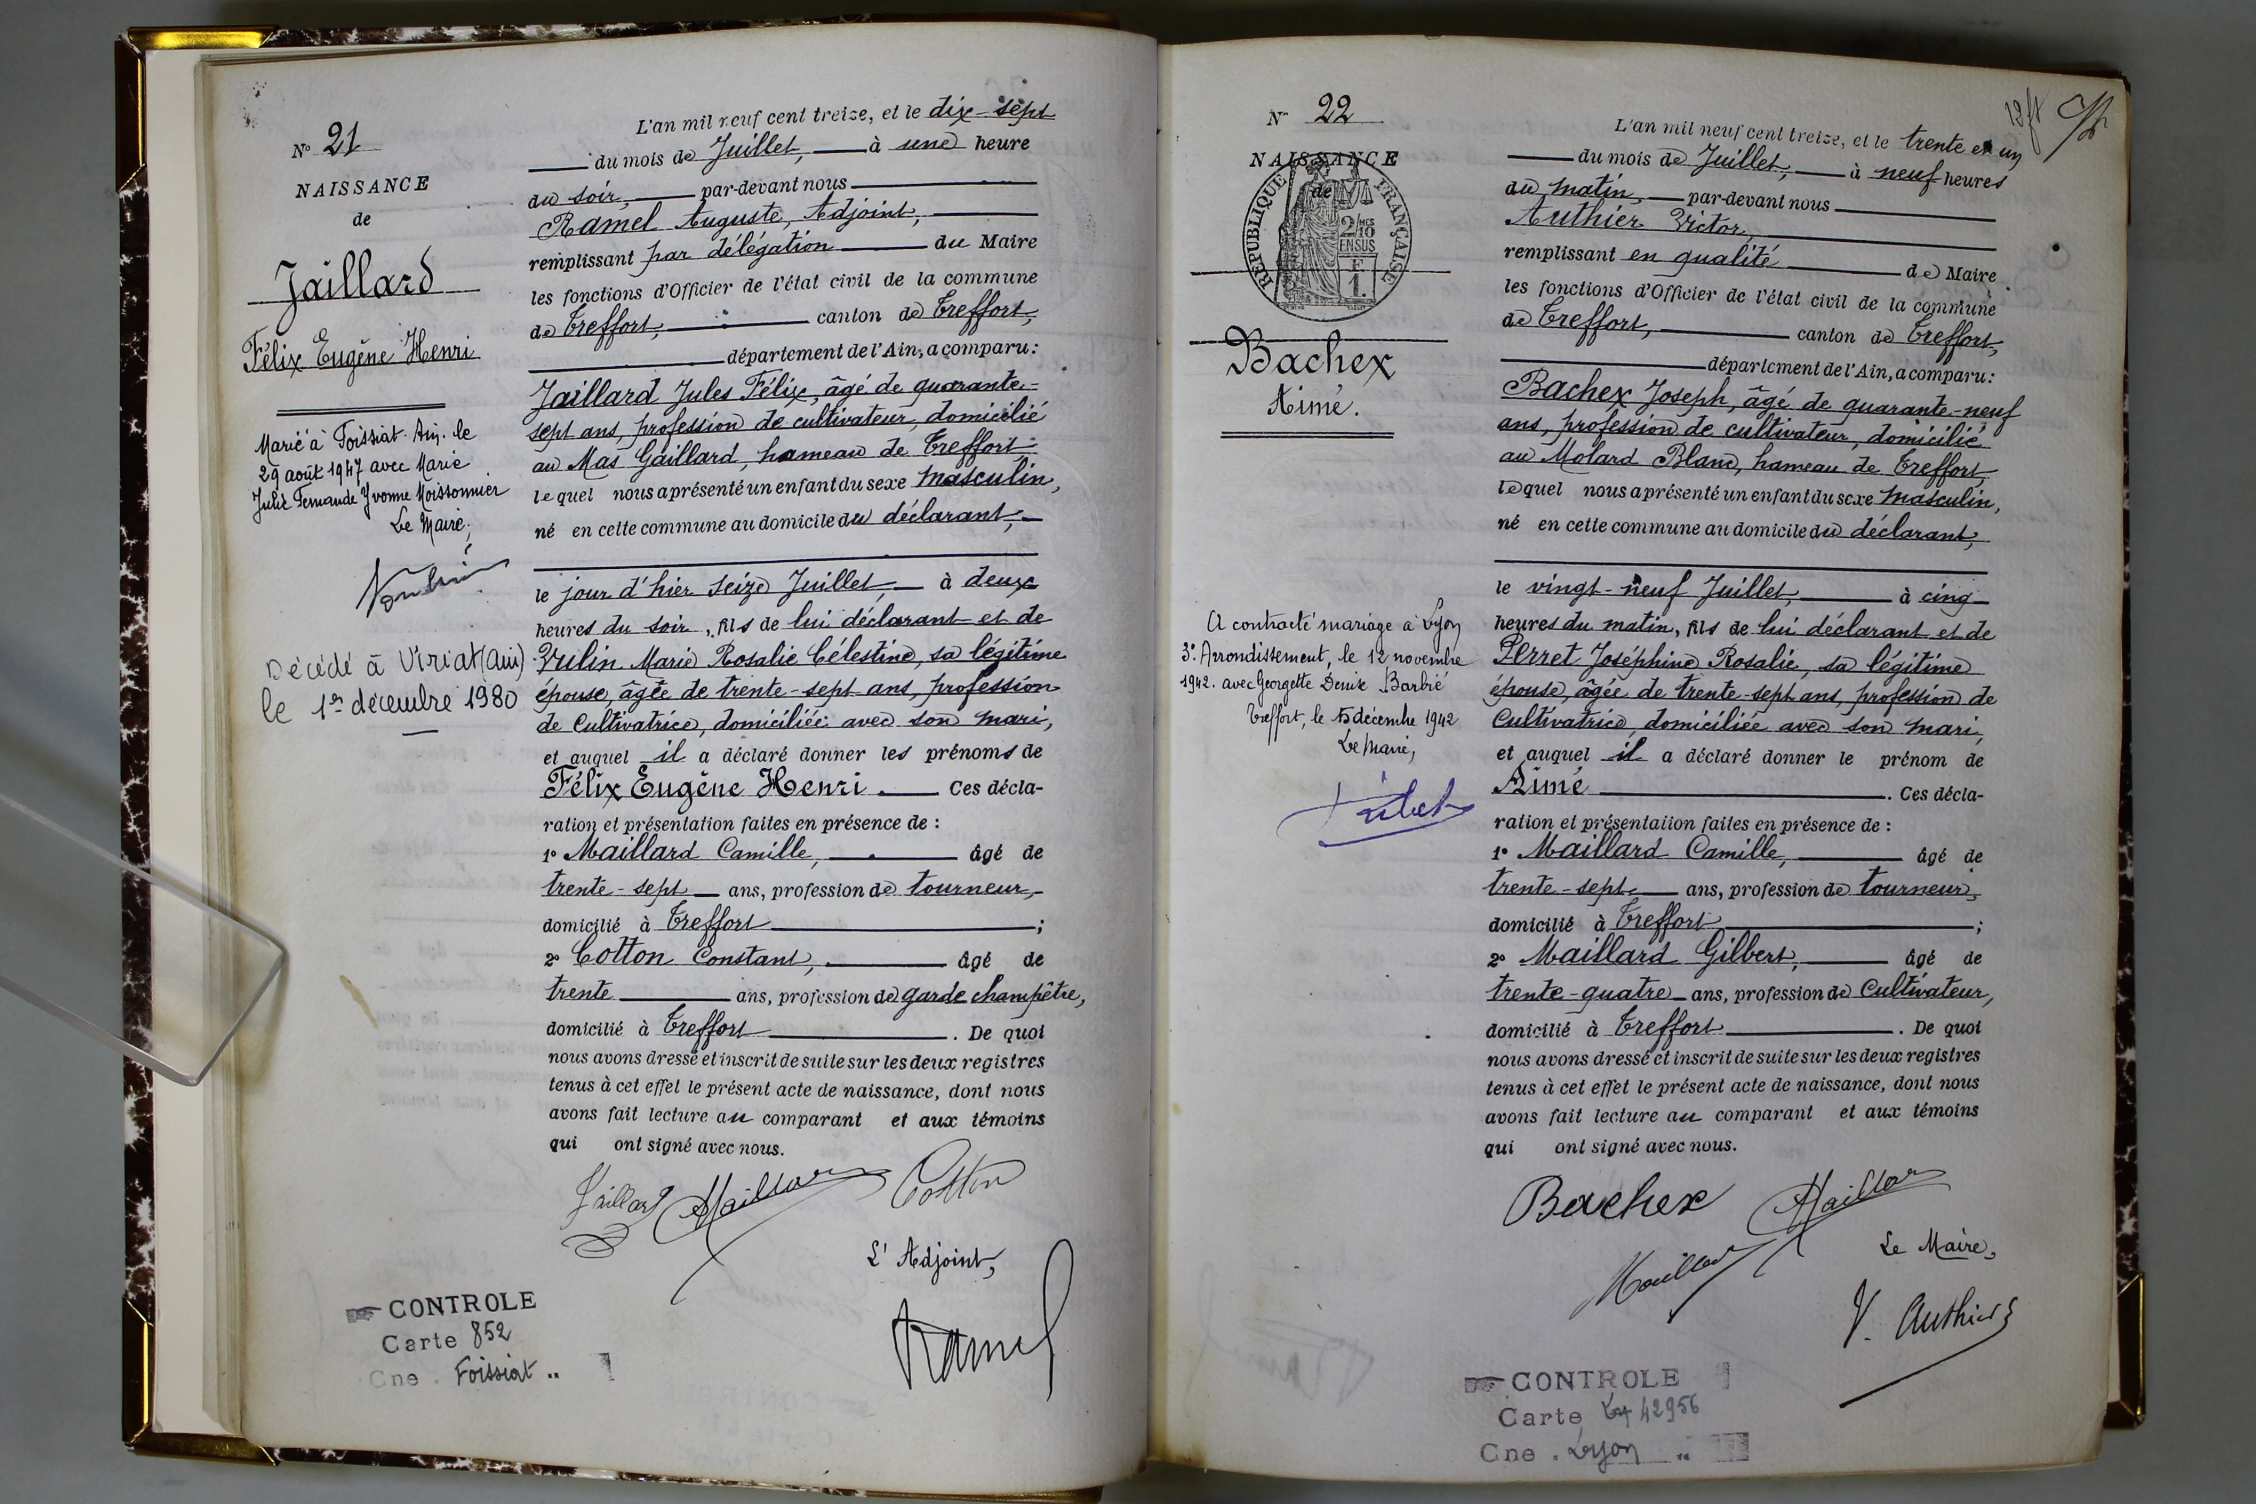 Nº 21
NAISSANCE
de
Jaillard
Félix Eugène Henri
Marié à Foissiat. Ain. le
29 août 1947 avec Marie
Julie Fernande Yvonne Moissonnier
Le Maire,
Décédé à Viriat (Ain)
le 1er décembre 1980
L'an mil neuf cent treize, et le dix-sept
du mois de Juillet, à une heure
du soir, par-devant nous
Ramel Auguste, Adjoint,
remplissant par délégation du Maire
les fonctions d'Officier de l'état civil de la commune
de Treffort, canton de Treffort,
département de l'Ain, a comparu:
Jaillard Jules Félix, âgé de quarante-
sept ans, profession de cultivateur, domicilié
au Mas Gaillard, hameau de Treffort
lequel nous a présenté un enfant du sexe masculin,
né en cette commune au domicile du déclarant,
le jour d'hier seize Juillet, à deux
heures du soir, fils de lui déclarant et de
Vulin Marie Rosalie Célestine, sa légitime
épouse, âgée de trente-sept ans, profession
de Cultivatrice, domiciliée avec son mari,
et auquel il a déclaré donner les prénoms de
Félix Eugène Henri. Ces décla-
ration et présentation faites en présence de :
1º Maillard Camille, âgé de
trente-sept ans, profession de tourneur,
domicilié à Treffort ;
2º Cotton Constant, âgé de
trente ans, profession de garde champêtre,
domicilié à Treffort . De quoi
nous avons dressé et inscrit de suite sur les deux registres
tenus à cet effet le présent acte de naissance, dont nous
avons fait lecture au comparant et aux témoins
qui ont signé avec nous.
Jaillard Maillard Cotton
L'Adjoint,
Ramel
CONTROLE
Carte 852
Cne. Foissiat
Nº 22
NAISSANCE
de
RÉPUBLIQUE FRANÇAISE
2/10 MES
EN SUS
F
1.
Bachex
Aimé.
A contracté mariage à Lyon
3e Arrondissement, le 12 novembre
1942. avec Georgette Denise Barbié
Treffort, le 15 décembre 1942
Le Maire,
L'an mil neuf cent treize, et le trente et un
du mois de Juillet, à neuf heures
du matin, par-devant nous
Authier Victor,
remplissant en qualité de Maire
les fonctions d'Officier de l'état civil de la commune
de Treffort, canton de Treffort,
département de l'Ain, a comparu:
Bachex Joseph, âgé de quarante-neuf
ans, profession de cultivateur, domicilié
au Molard Blanc, hameau de Treffort,
lequel nous a présenté un enfant du sexe masculin,
né en cette commune au domicile du déclarant,
le vingt-neuf Juillet, à cinq
heures du matin, fils de lui déclarant et de
Perret Joséphine Rosalie, sa légitime
épouse, âgée de trente-sept ans, profession de
Cultivatrice, domiciliée avec son mari,
et auquel il a déclaré donner le prénom de
Aimé . Ces décla-
ration et présentation faites en présence de :
1º Maillard Camille, âgé de
trente-sept ans, profession de tourneur,
domicilié à Treffort ;
2º Maillard Gilbert, âgé de
trente-quatre ans, profession de Cultivateur,
domicilié à Treffort . De quoi
nous avons dressé et inscrit de suite sur les deux registres
tenus à cet effet le présent acte de naissance, dont nous
avons fait lecture au comparant et aux témoins
qui ont signé avec nous.
Bachex Maillard
Maillard
Le Maire,
V. Authier
CONTROLE
Carte Ly 42956
Cne. Lyon